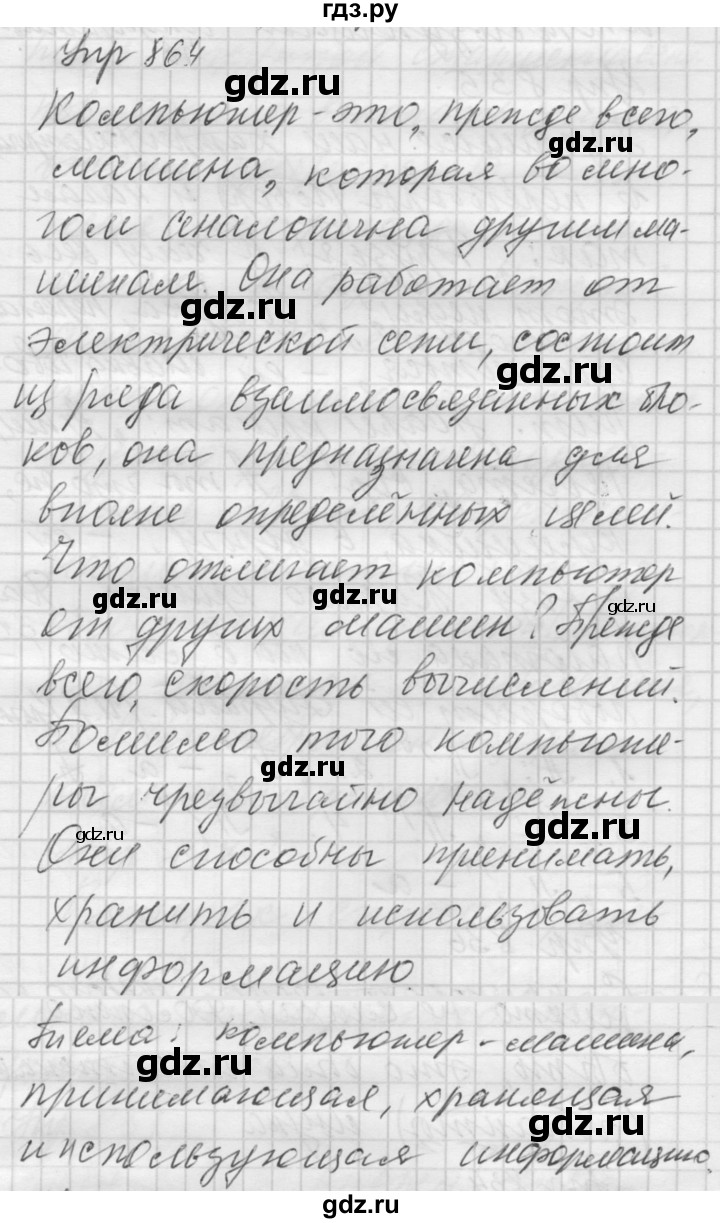 гдз.ру
Упр 864
gdz.ru
Компьютер - это, прежде всего,
gdz.ru
машина, которая во мно-
гом аналогична другим ма-
шинам. Она работает от
gdz.ru
электрической сети, состоит
gdz.ru
из ряда взаимосвязанных бло-
ков, она предназначена для
вполне определённых целей.
Что отличает компьютер
gdz.ru gdz.ru gdz.ru
от других машин? Прежде
всего, скорость вычислений.
Помимо того компьюте-
gdz.ru
ры чрезвычайно надёжны.
gdz.ru gdz.ru
Они способны принимать,
хранить и использовать
информацию.
Тема: компьютер - машина,
gdz.ru
принимающая, хранящая
gdz.ru
и использующая информацию.
gdz.ru